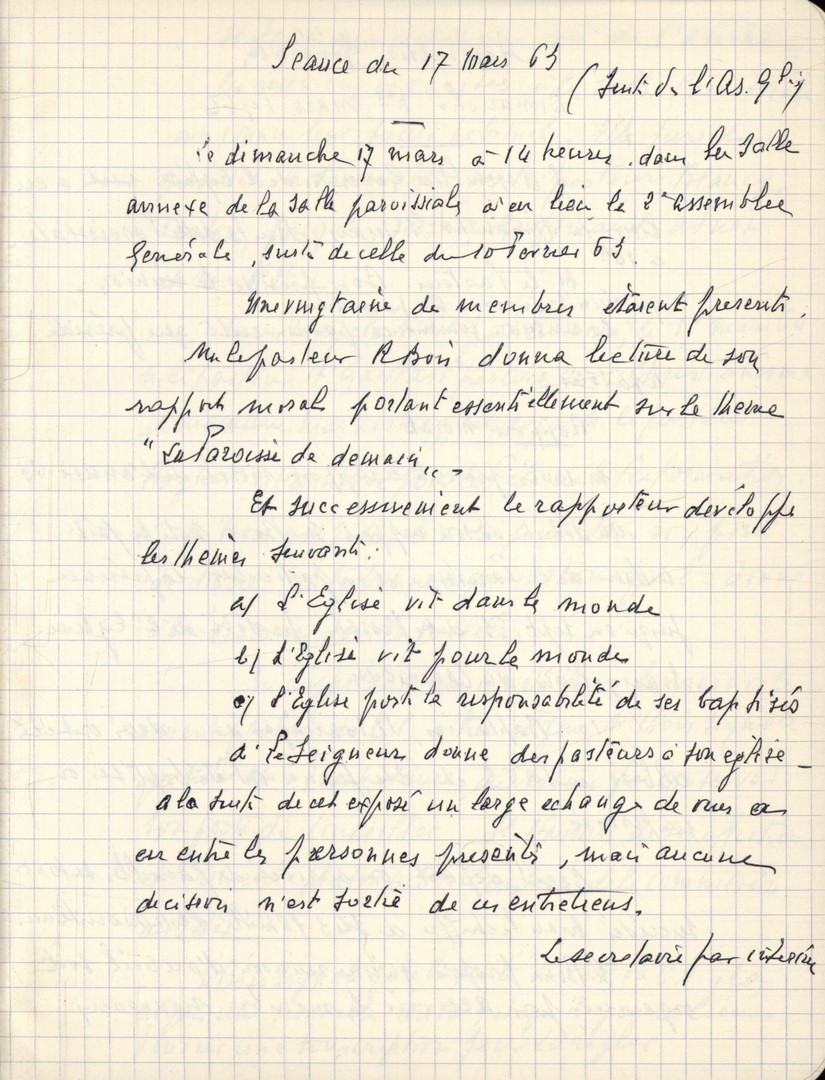 Séance du 17 Mars 63
(Suite de l'As. Gle)
Le dimanche 17 mars à 14 heures, dans la Salle
annexe de la salle paroissiale a eu lieu la 2e assemblée
Générale, suite de celle du 10 Février 63.
Une vingtaine de membres étaient présents.
M le pasteur R Bois donna lecture de son
rapport moral portant essentiellement sur le thème
"La Paroisse de demain"
Et successivement le rapporteur développe
les thèmes suivants :
a) L'Eglise vit dans le monde
b) L'Eglise vit pour le monde
c) l'Eglise porte la responsabilité de ses baptisés
d) Le Seigneur donne des pasteurs à son église -
a la suite de cet exposé un large échange de vues a
eu entre les personnes présentes, mais aucune
décision n'est sortie de ces entretiens.
Le secrétaire par intérim